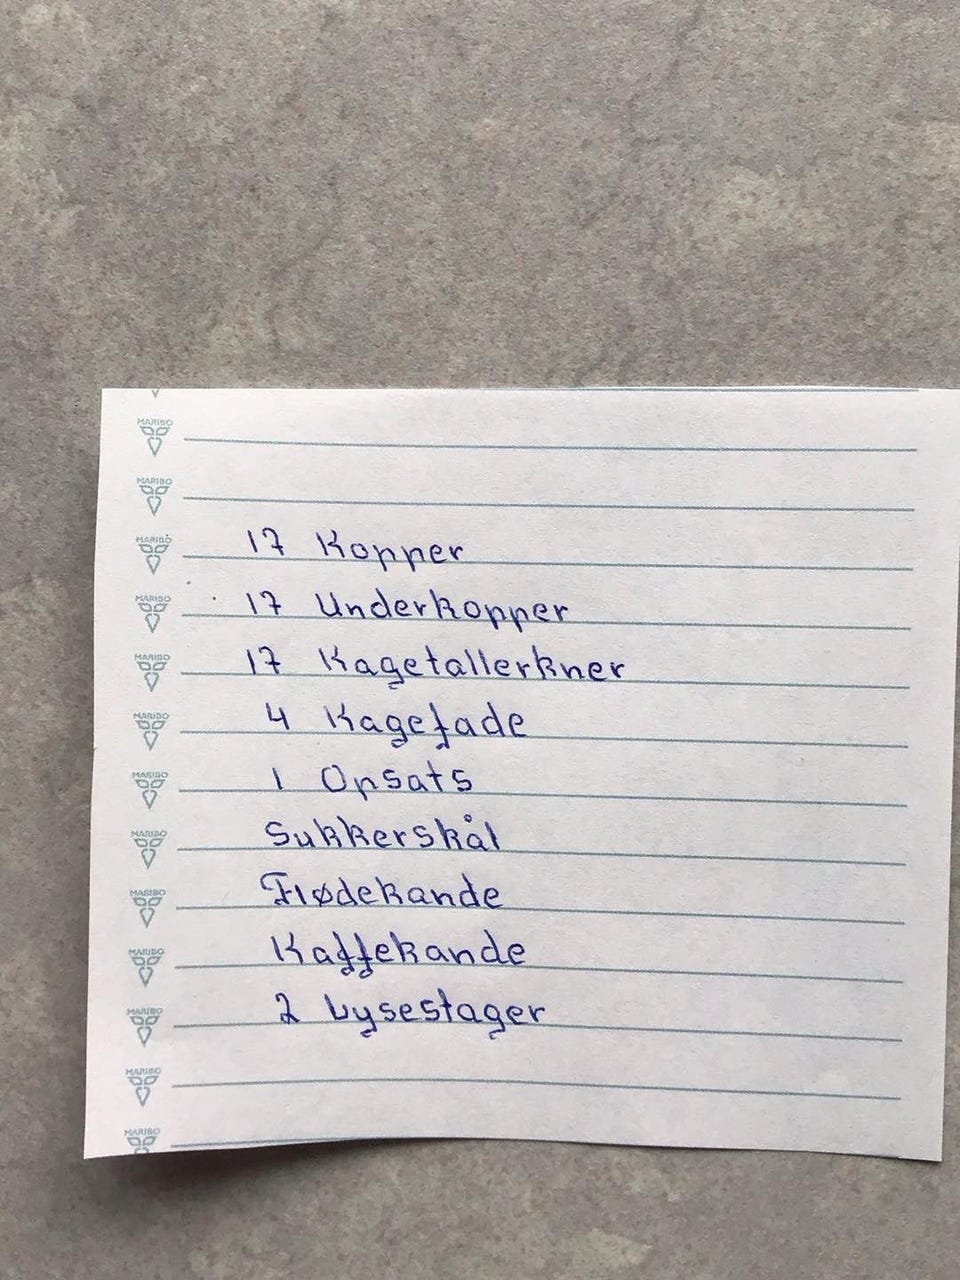 MARIBO
MARIBO
MARIBO 17 Kopper
MARIBO 17 Underkopper
MARIBO 17 Kagetallerkner
MARIBO 4 Kagefade
MARIBO 1 Opsats
MARIBO Sukkerskål
MARIBO Flødekande
MARIBO Kaffekande
MARIBO 2 Lysestager
MARIBO
MARIBO